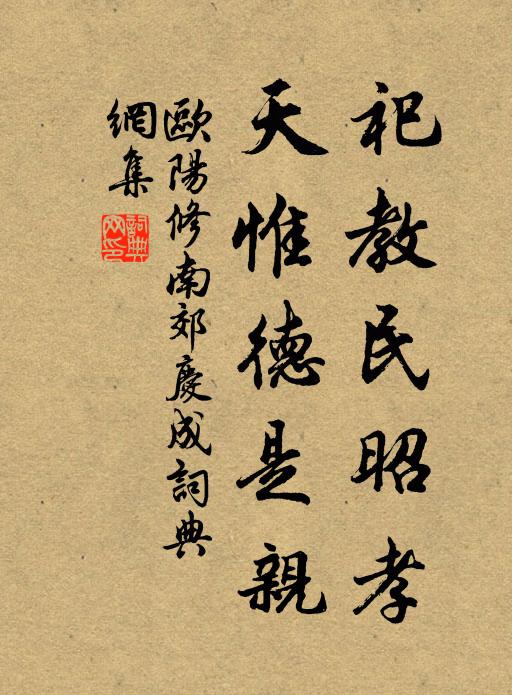 祀教民昭孝
天惟德是親
歐陽修南郊慶成詞典
網集
詞典網印